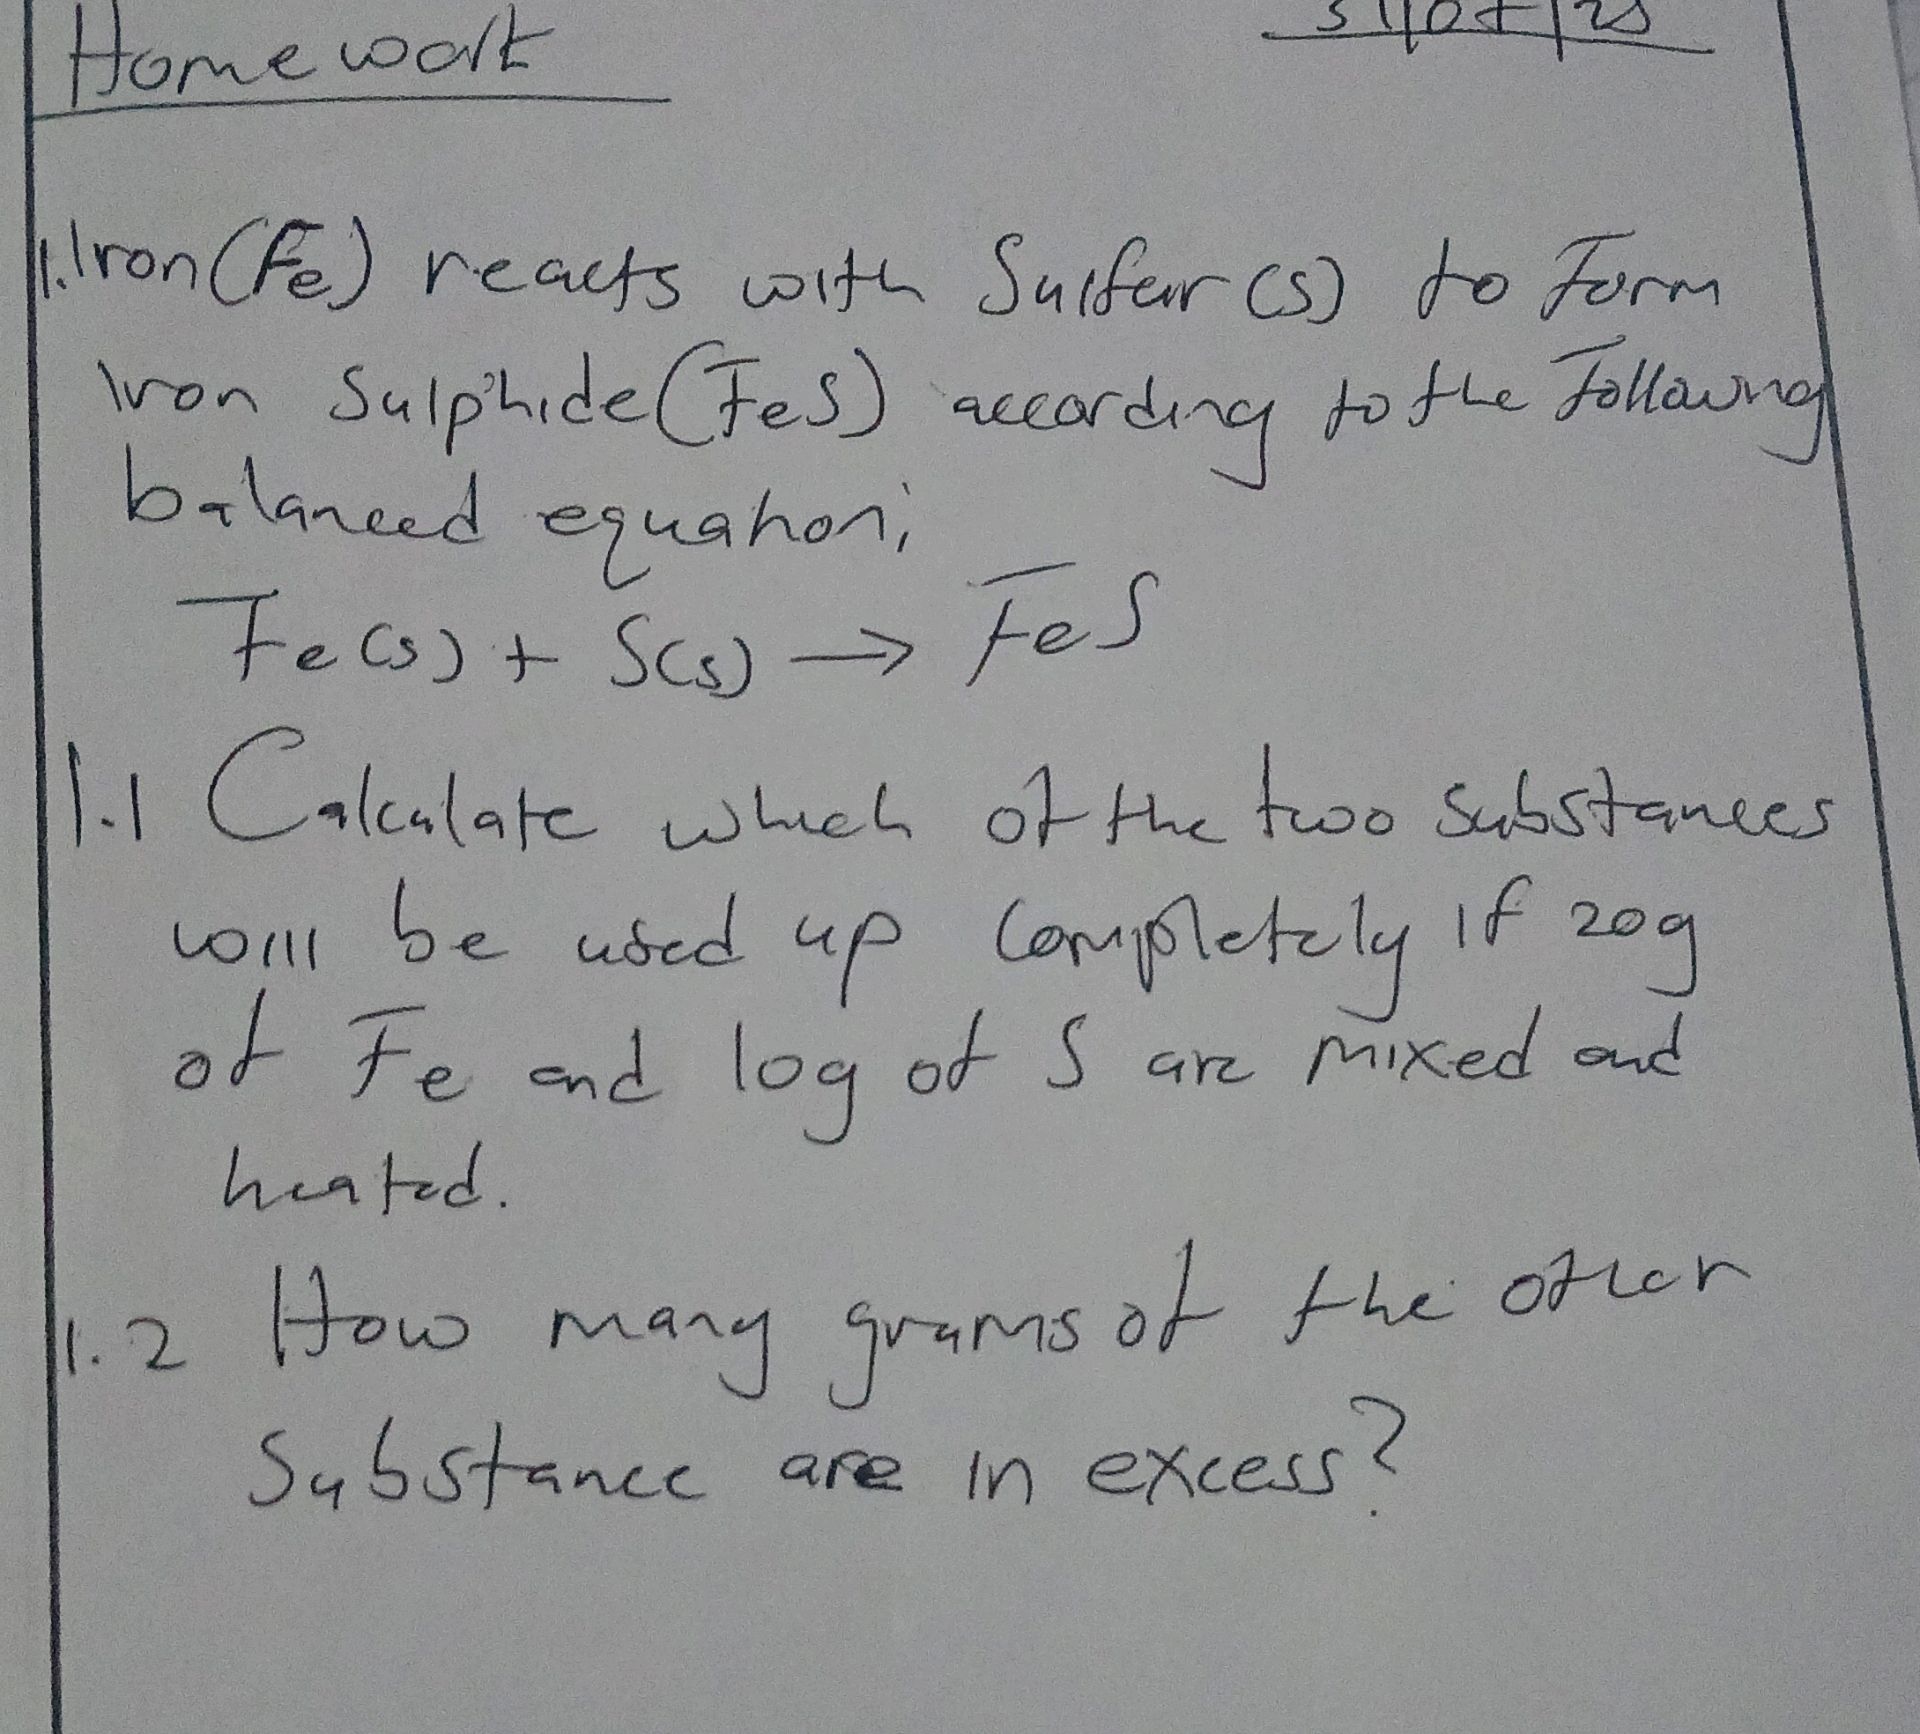 Homework
31/07/25
1. Iron (Fe) reacts with Sulfur (s) to Form
Iron Sulphide (FeS) according to the Following
balanced equation;
Fe(s) + S(s) → FeS
1.1 Calculate which of the two Substances
will be used up completely if 20g
of Fe and 10g of S are mixed and
heated.
1.2 How many grams of the other
Substance are in excess?